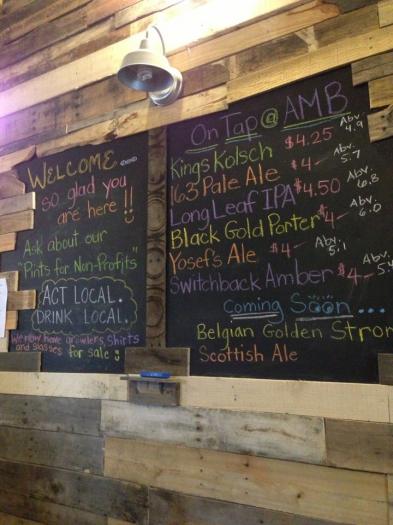 WELCOME
so glad you
are here!!
Ask about our
"Pints for Non-Profits"
ACT LOCAL.
DRINK LOCAL.
We now have growlers, shirts
and glasses for sale
On Tap @ AMB
Kings Kolsch $4.25 Abv. 4.9
163 Pale Ale $4- Abv. 5.7
Long Leaf IPA $4.50 Abv. 6.8
Black Gold Porter $4- Abv. 6.0
Yosef's Ale $4- Abv. 5.1
Switchback Amber $4- Abv.
Coming Soon...
Belgian Golden Stron
Scottish Ale